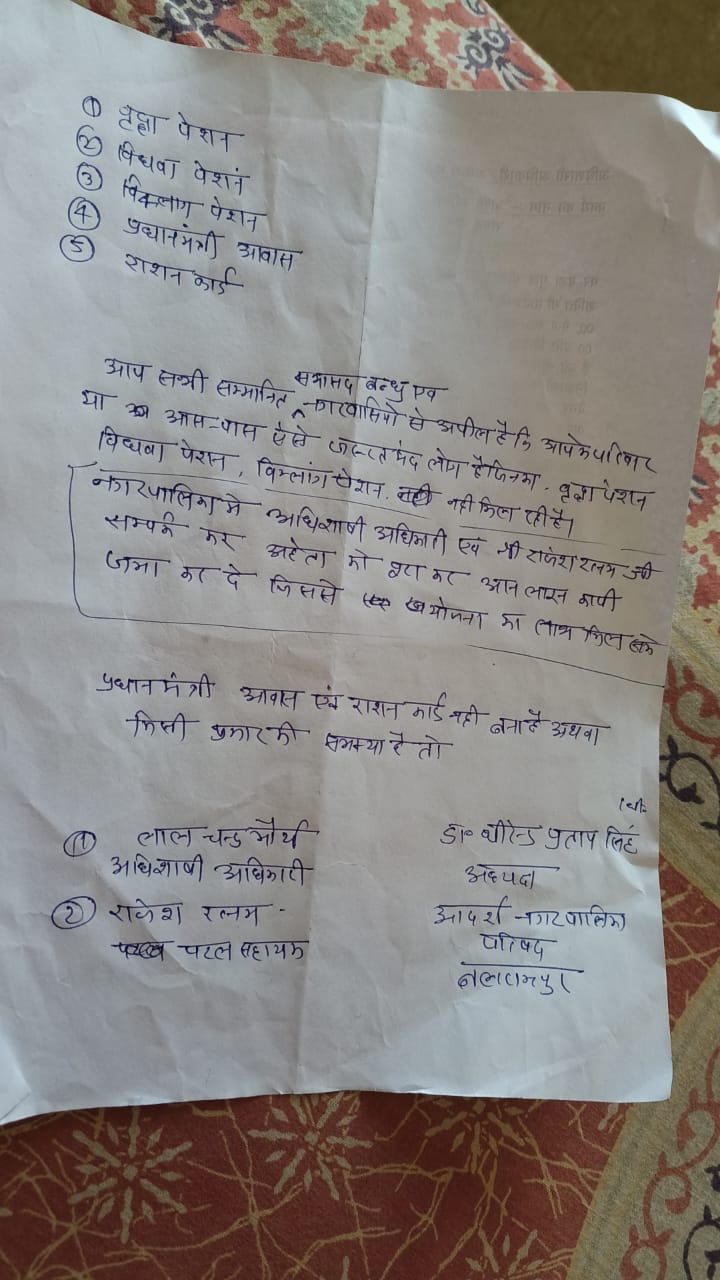 ① वृद्धा पेशन
② विधवा पेशनं
③ विकलाग पेशन
④ प्रधानमंत्री आवास
⑤ राशन कार्ड
सभासद बन्धु एवं
आप सभी सम्मानित नगरवासियो से अपील है कि आपके परिवार
या आस-पास ऐसे जरूरतमंद लोग है जिनका, वृद्धा पेशन
विधवा पेशन, विकलांग पेशन, नही मिल रही है।
नगरपालिका मे अधिशाषी अधिकारी एवं श्री राकेश रत्नम जी
सम्पर्क कर अहेता को पूरा कर आन लाइन कापी
जमा कर दे जिससे योजना का लाभ मिल सके
प्रधानमंत्री आवास एवं राशन कार्ड नही बना है अथवा
किसी प्रकार की समस्या है तो
① लाल चन्द्र मौर्य
अधिशाषी अधिकारी
② राकेश रत्नम -
पटल सहायक
डा० धीरेन्द्र प्रताप सिंह
अध्यक्ष
आदर्श नगरपालिका
परिषद
बलरामपुर